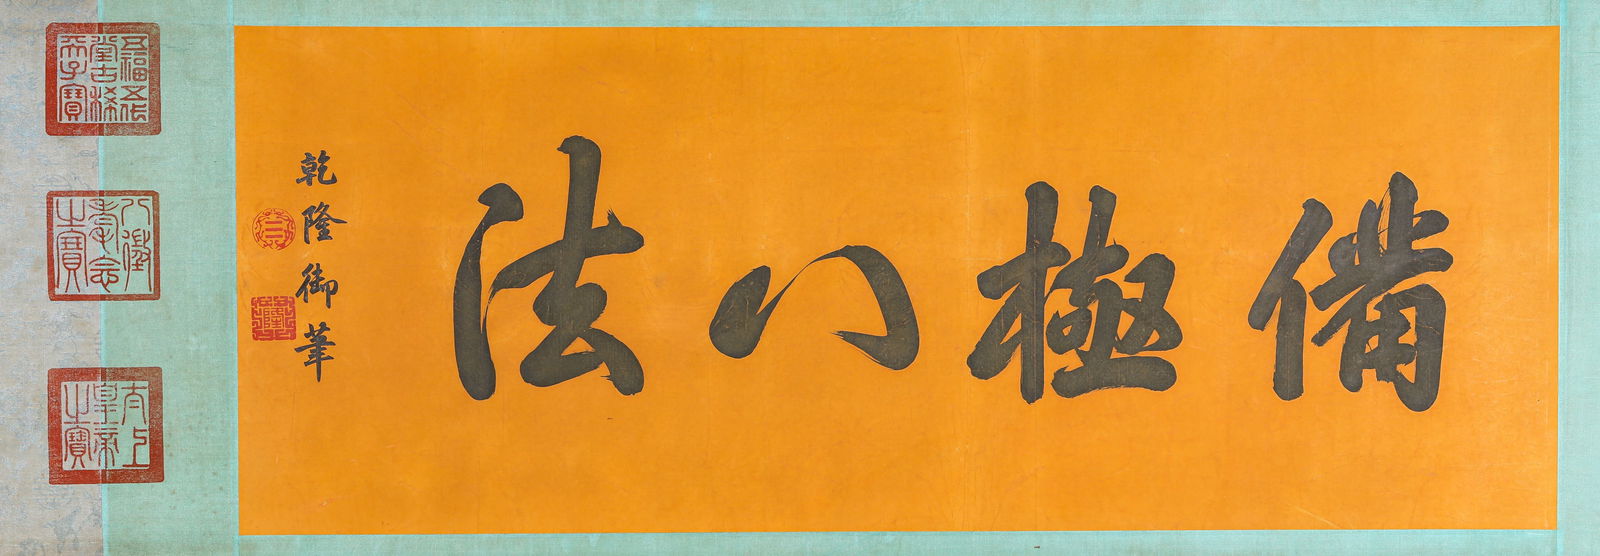 備極八法
乾隆御筆
三
乾隆
五福五代堂古稀天子寶
八徵耄念之寶
太上皇帝之寶